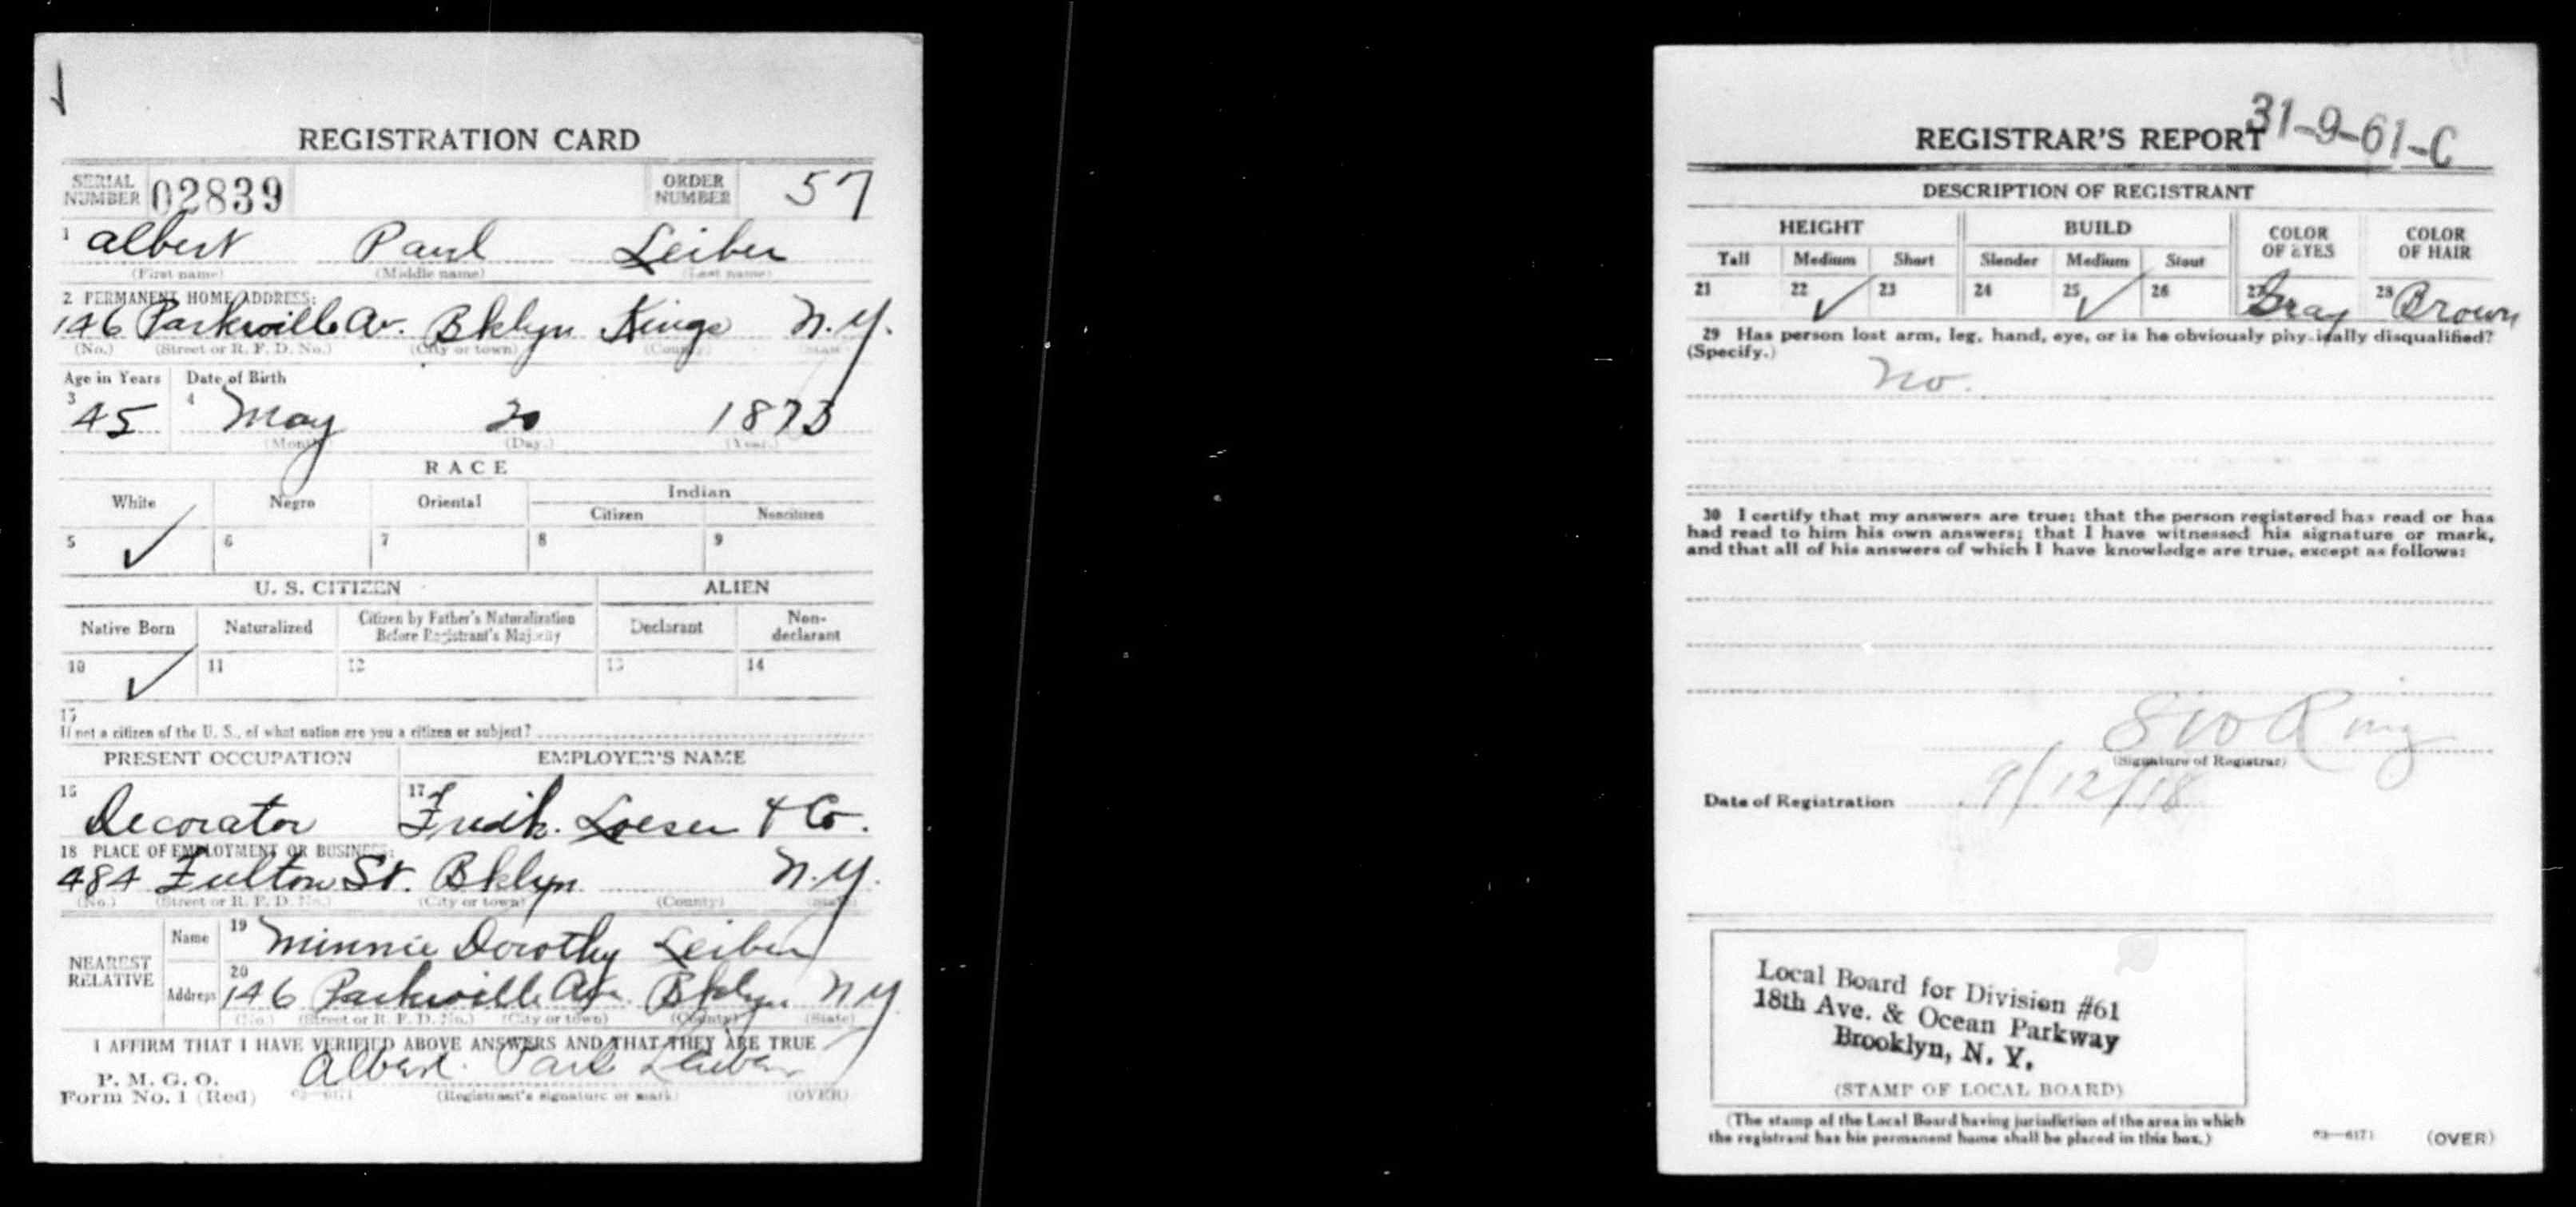 REGISTRATION CARD
SERIAL NUMBER 02839 ORDER NUMBER 57
1 Albert Paul Leiber
(First name) (Middle name) (Last name)
2 PERMANENT HOME ADDRESS:
146 Parkville Av. Bklyn Kings N.Y.
(No.) (Street or R. F. D. No.) (City or town) (County) (State)
Age in Years Date of Birth
3 45 4 May 20 1873
(Month) (Day.) (Year.)
RACE
White Negro Oriental Indian
Citizen Noncitizen
5 ✓ 6 7 8 9
U. S. CITIZEN ALIEN
Native Born Naturalized Citizen by Father's Naturalization Before Registrant's Majority Declarant Non-declarant
10 ✓ 11 12 13 14
15
If not a citizen of the U. S., of what nation are you a citizen or subject?
PRESENT OCCUPATION EMPLOYER'S NAME
16 Decorator 17 Fredk. Loeser & Co.
18 PLACE OF EMPLOYMENT OR BUSINESS:
484 Fulton St. Bklyn N.Y.
(No.) (Street or R. F. D. No.) (City or town) (County) (State)
NEAREST RELATIVE
Name 19 Minnie Dorothy Leiber
Address 20 146 Parkville Av. Bklyn N.Y.
(No.) (Street or R. F. D. No.) (City or town) (County) (State)
I AFFIRM THAT I HAVE VERIFIED ABOVE ANSWERS AND THAT THEY ARE TRUE
P. M. G. O.
Form No. 1 (Red) Albert Paul Leiber
03—6171 (Registrant's signature or mark) (OVER)
31-9-61-C
REGISTRAR'S REPORT
DESCRIPTION OF REGISTRANT
HEIGHT BUILD COLOR OF EYES COLOR OF HAIR
Tall Medium Short Slender Medium Stout
21 22 ✓ 23 24 25 ✓ 26 27 Gray 28 Brown
29 Has person lost arm, leg, hand, eye, or is he obviously physically disqualified?
(Specify.)
No.
30 I certify that my answers are true; that the person registered has read or has
had read to him his own answers; that I have witnessed his signature or mark,
and that all of his answers of which I have knowledge are true, except as follows:
(Signature of Registrar)
Date of Registration 9/12/18
Local Board for Division #61
18th Ave. & Ocean Parkway
Brooklyn, N. Y.
(STAMP OF LOCAL BOARD)
(The stamp of the Local Board having jurisdiction of the area in which
the registrant has his permanent home shall be placed in this box.)
03—6171 (OVER)